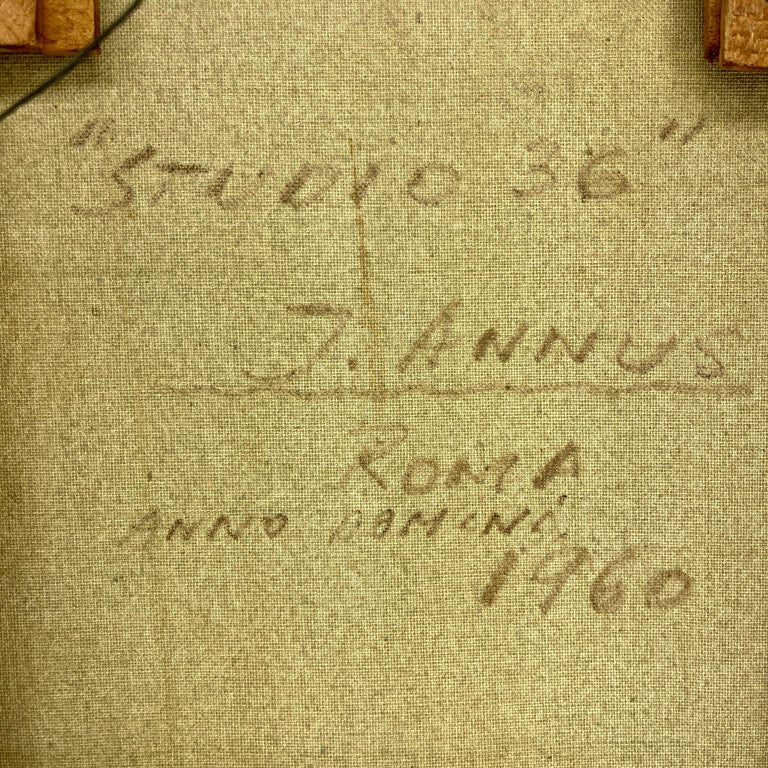 "STUDIO 36"
J. ANNUS
ROMA
ANNO DOMINI
1960